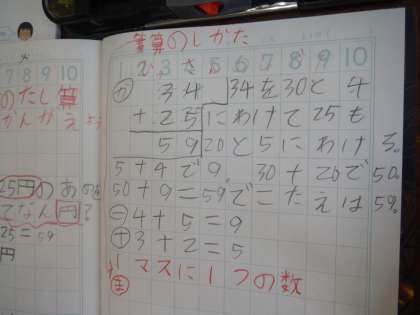 7 8 9 10
のたし算
かんがえよう
25円のあめ
てなん円?
25=59
円
筆算のしかた
1 2 3 4 5 6 7 8 9 10
か 34 34を30と4
+25 にわけて25も
59 20と5にわける。
5+4で9。30+20で50。
50+9=59でこたえは59。
一 4+5=9
十 3+2=5
ま 1マスに1つの数